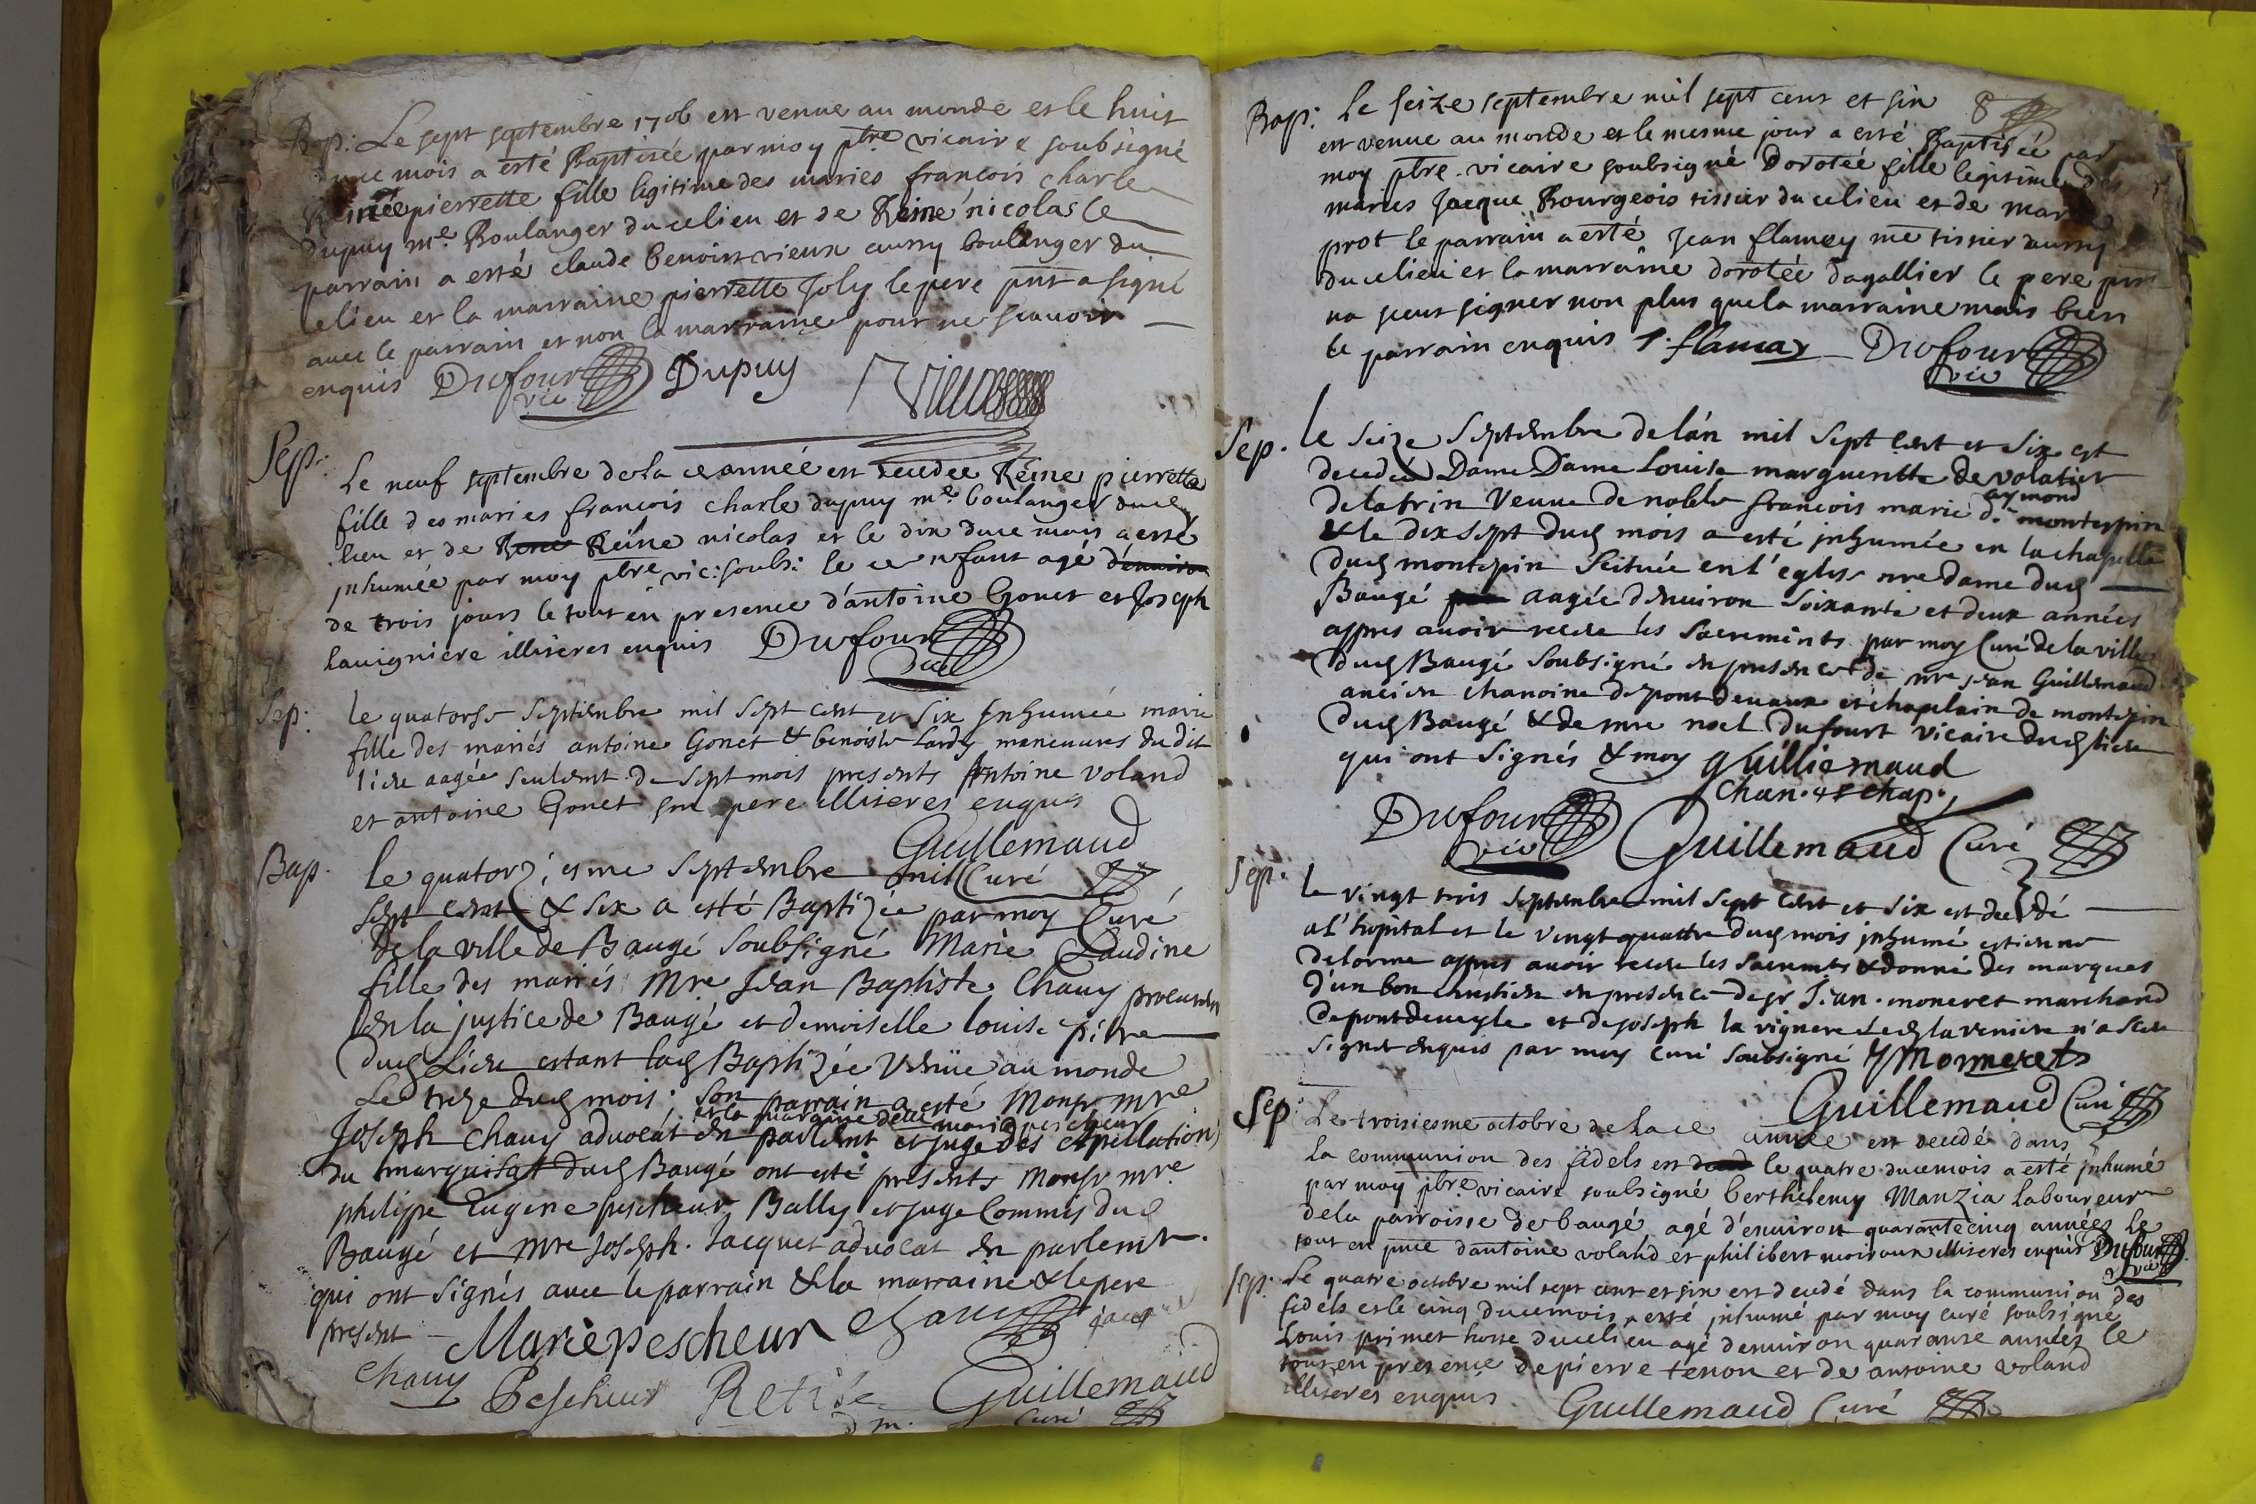 Bap: Le sept septembre 1706 est venue au monde et le huit
du ce mois a esté Baptisée par moy pbre vicaire soubsigné
Reine pierrette fille legitime des mariés francois charle
Dupuy me. Boulanger du ce lieu et de Reine nicolas le
parrain a esté claude benoist vieux aussy boulanger du
ce lieu et la marraine pierrette Joly le pere pnt a signé
avec le parrain et non la marraine pour ne scavoir
enquis Dufour vic Dupuy Vieux
Sep: Le neuf septembre de la ce année est decedee Reine pierrette
fille des maries francois charle dupuy me. boulanger du ce
lieu et de Reine nicolas et le dix du ce mois a esté
inhumée par moy pbre vic: soubs: le ce enfant agé d'environ
de trois jours le tout en presence d'antoine Gonet et Joseph
Lavigniere illiteres enquis Dufour vic
Sep: le quatorse Septembre mil Sept cent et Six Inhumée marie
fille des mariés antoine Gonet & benoiste Lardy manevures dudit
lieu aagée seulemt de Sept mois presents Antoine Voland
et antoine Gonet son pere illiteres enquis
Guillemaud Curé
Bap. le quatorziesme Septembre mil
sept cent & six a esté Baptizée par moy Curé
de la ville de Baugé Soubsigné Marie Claudine
fille des mariés Mre Jean Baptiste Chauy procureur
en la justice de Baugé et demoiselle louise pierre
dud Lieu estant lad Baptizée venüe au monde
Le treze dud mois. Son parrain a esté Monsr mre
et la maraine delle marie pescheur
Joseph Chauy advocat en parlemt et juge des appellations
du marquisatt dud Baugé ont esté presents Monsr mre.
philippe Eugene pescheur Bally et juge Commis dud
Baugé et Mre Joseph Jacquet advocat en parlemt.
qui ont Signés avec le parrain & la marraine & le pere
present Marie Pescheur Chauy
Chauy Pescheur Guillemaud
Curé
8
Bap: Le seize septembre mil sept cens et six
est venue au monde et le mesme jour a esté Baptisée par
moy pbre. vicaire soubsigné Dorotée fille legitime des
mariés Jacque Bourgeois tissier du ce lieu et de Marie
prot le parrain a esté Jean flamey me tissier aussy
du ce lieu et la marraine dorotée dagallier le pere pnt
na sceut signer non plus que la marraine mais bien
le parrain enquis Dufour vic
Sep. le Seize Septembre de lán mil Sept Cent et Six est
decedeé Dame Dame Louise margueritte de volatier
delatrin Veuve de noble francois marie d. aymond montespin
& le dix Sept dud mois a esté inhumée en la chapelle
dud montepin Scituée en l'eglise nre dame dud
Baugé aagée d'environ Soixante et deux années
appres avoir receu les Sacrements par moy Curé de la ville
dud Baugé Soubsigné en presence de mre jean Guillemaud
ancien chanoine de pont de vaux et chapelain de montepin
dud Baugé & de mre noel Dufourt vicaire dud lieu
qui ont Signés & moy Guilliemaud
Chan. et Chap.
Dufour vic Guillemaud Curé
Sep. le vingt trois Septembre mil Sept Cent et Six est decedé
a l'hopital et le vingt quattre dud mois inhumé estienne
delorme appres avoir receu les Sacremts & donné des marques
d'un bon chrestien en presence de sr Jean. moneret marchand
de pont de veyle et de joseph la vignere led la veniere n'a sceu
signer enquis par moy Curé Soubsigné Monnerets
Guillemaud Curé
Sep. Le troisiesme octobre de la ce année est decedé dans
la communion des fidels et le quatre du ce mois a esté inhumé
par moy pbre vicaire soubsigné berthelemy Manzia laboureur
de la parroisse de baugé agé d'environ quarante cinq années le
tout en pnce d'antoine voland et philibert moiroux illiteres enquis Dufour vic
Sep: Le quatre octobre mil sept cent et six est decedé dans la communion des
fidels et le cinq du ce mois a esté inhumé par moy curé soubsigné
Louis primet hoste du ce lieu agé d'environ quarante années le
tout en presence de pierre tenon et de antoine voland
illiteres enquis Guillemaud Curé